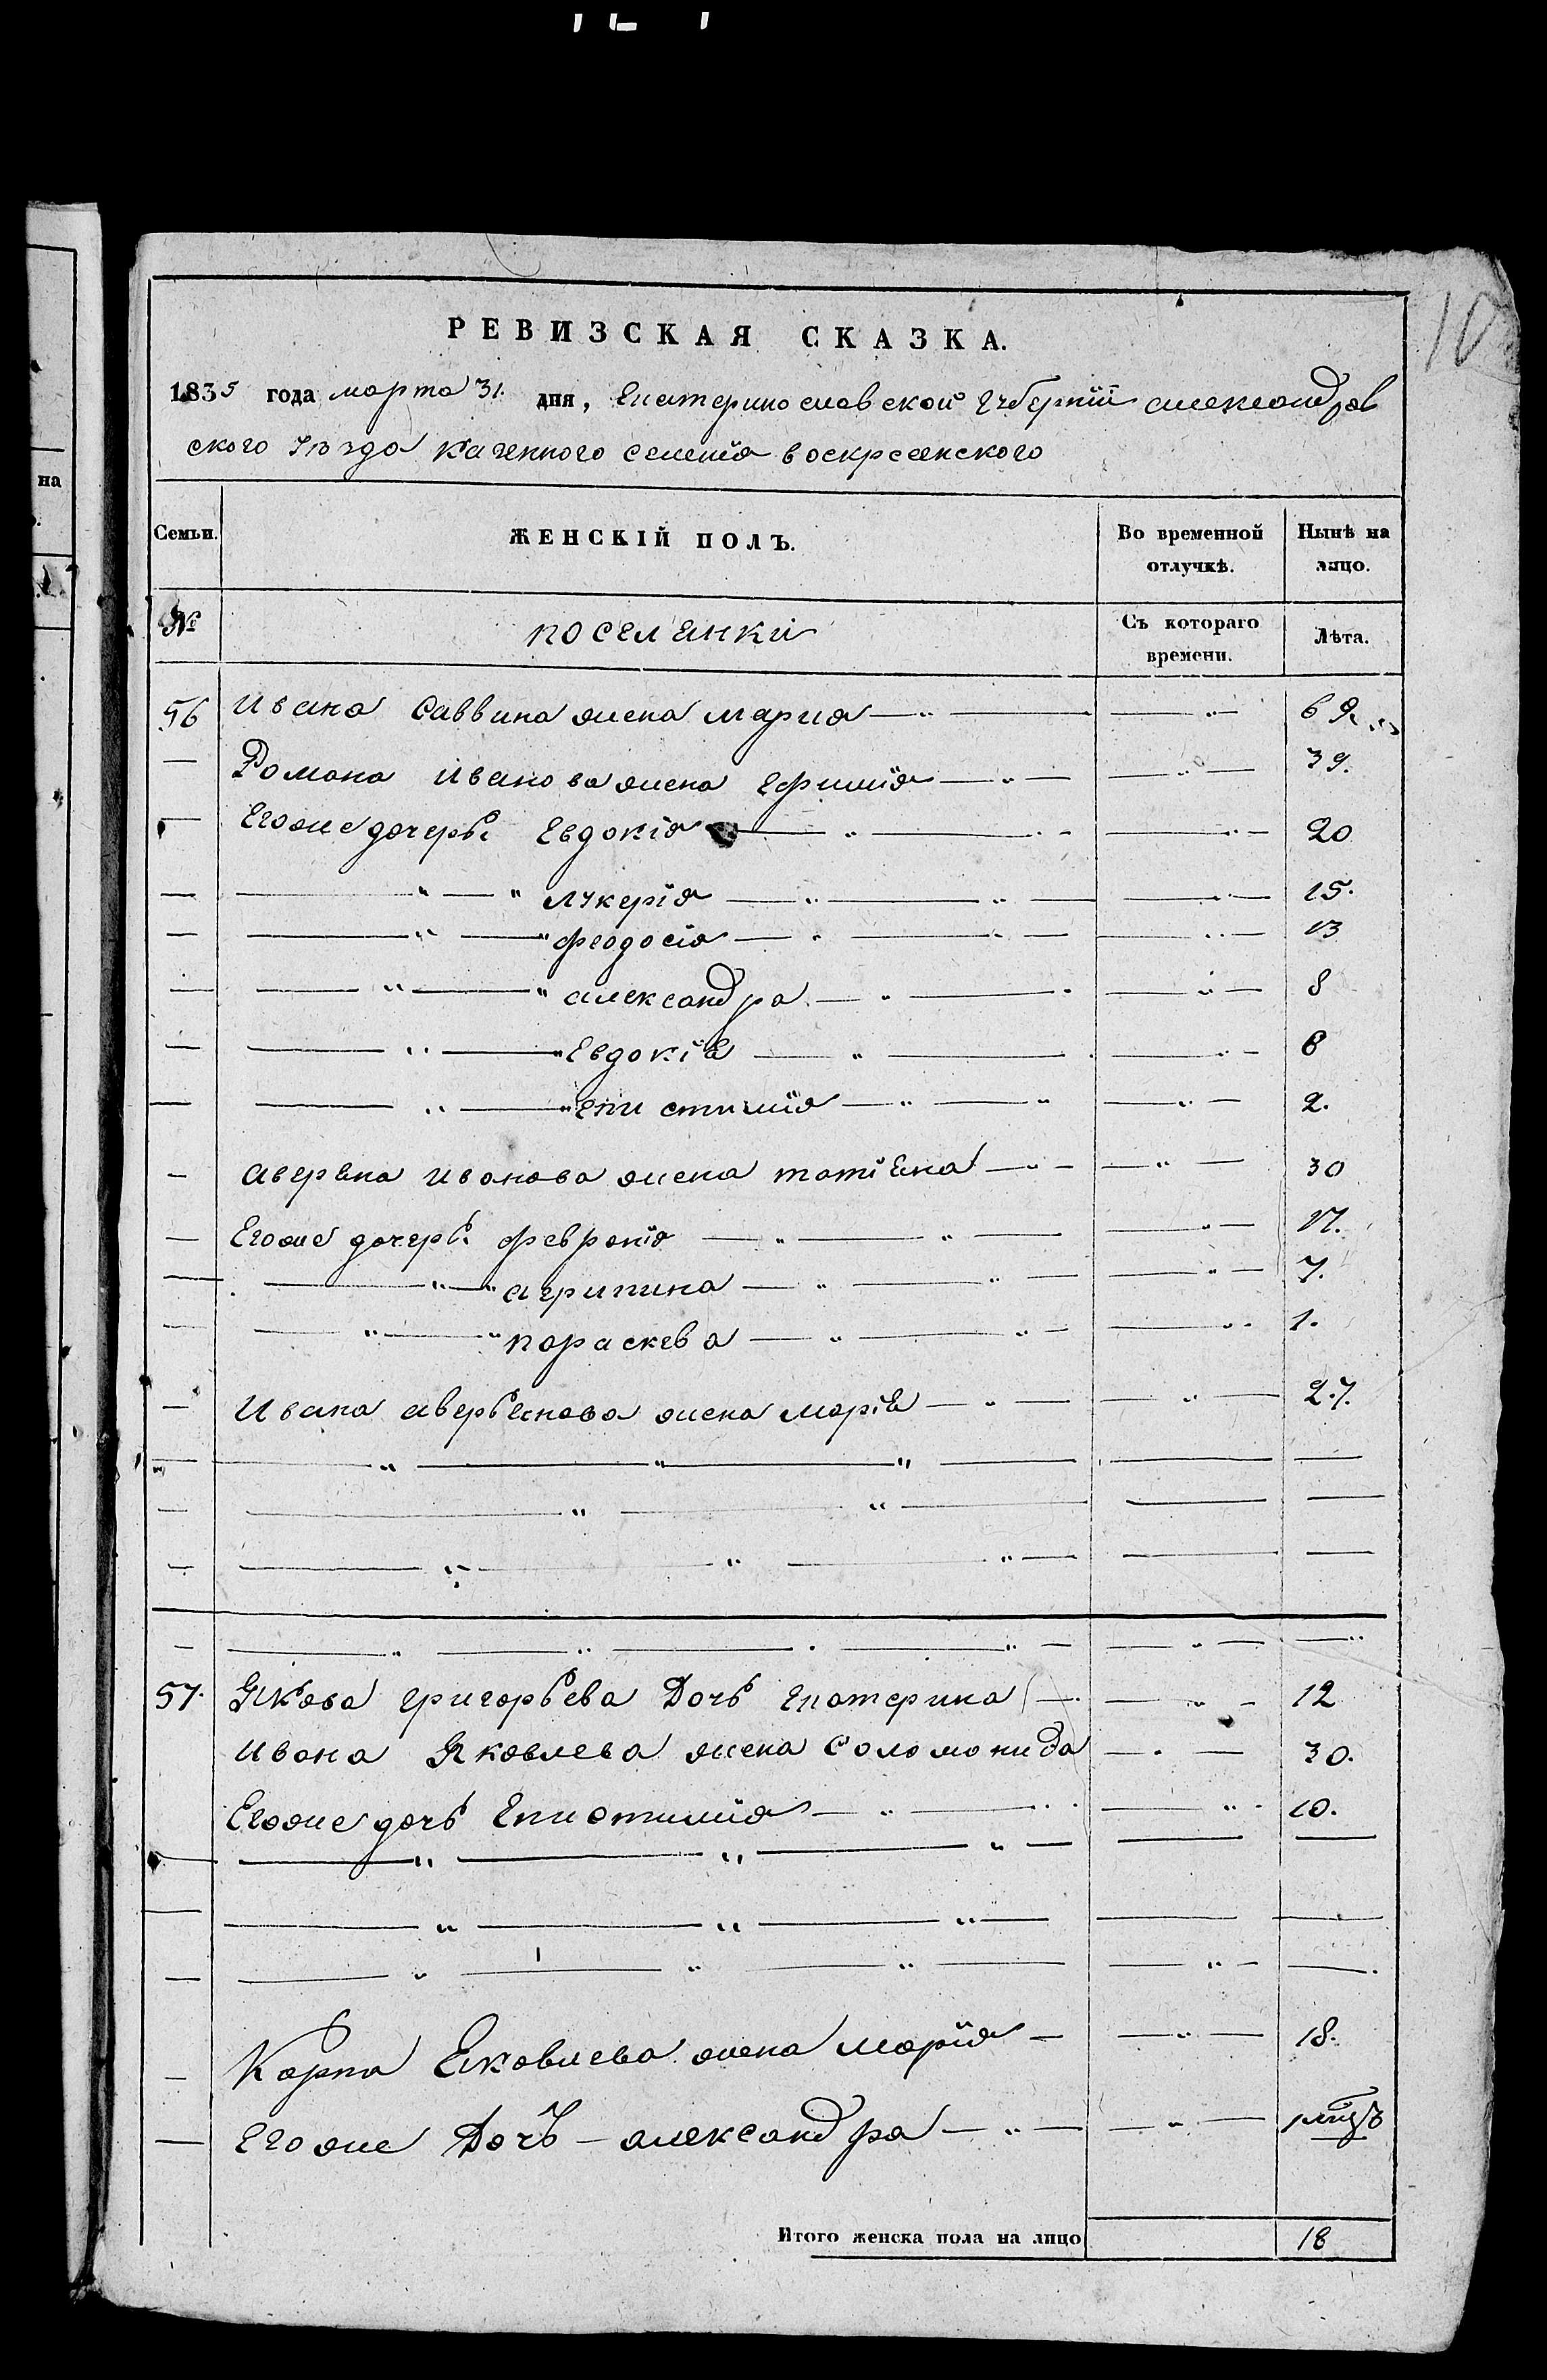 10
РЕВИЗСКАЯ СКАЗКА.
1835 года марта 31. дня, Екатеринославской губернiи александров
ского уѣзда казенного селенiя воскресенского
Семьи. ЖЕНСКІЙ ПОЛЪ. Во временной отлучкѣ. Нынѣ на лицо.
№ поселянки Съ котораго времени. Лѣта.
56 Ивана Саввина жена мариа — " — — " — 69
— Романа иванова жена Ефимiя — " — — " — 39.
— Егоже дочерьi Евдокiя — " — — " — 20
— — " — " лукерiя — " — — " — 15.
— — " — " феодосiя — " — — " — 13
— — " — " александра — " — — " — 8
— — " — " Евдокiя — " — — " — 6
— — " — " епистимiя — " — — " — 2.
— аверяна иванова жена татiяна — " — — " — 30
— Егоже дочерьi феврониiя — " — — " — 17.
— — " — " агрипина — " — — " — 7.
— — " — " параскева — " — — " — 1.
— Ивана аверьянова жена марiя — " — — " — 27.
57. Якова григорьева Дочь екатерина — — " — 12
Ивана Яковлева жена Соломонида — " — 30.
Егоже дочь Епистимiя — " — — " — 10.
— Карпа Яковлева жена марiя — — " — 18.
— Егоже Дочь — александра — " — — " — 1 мцъ
Итого женска пола на лицо 18
на